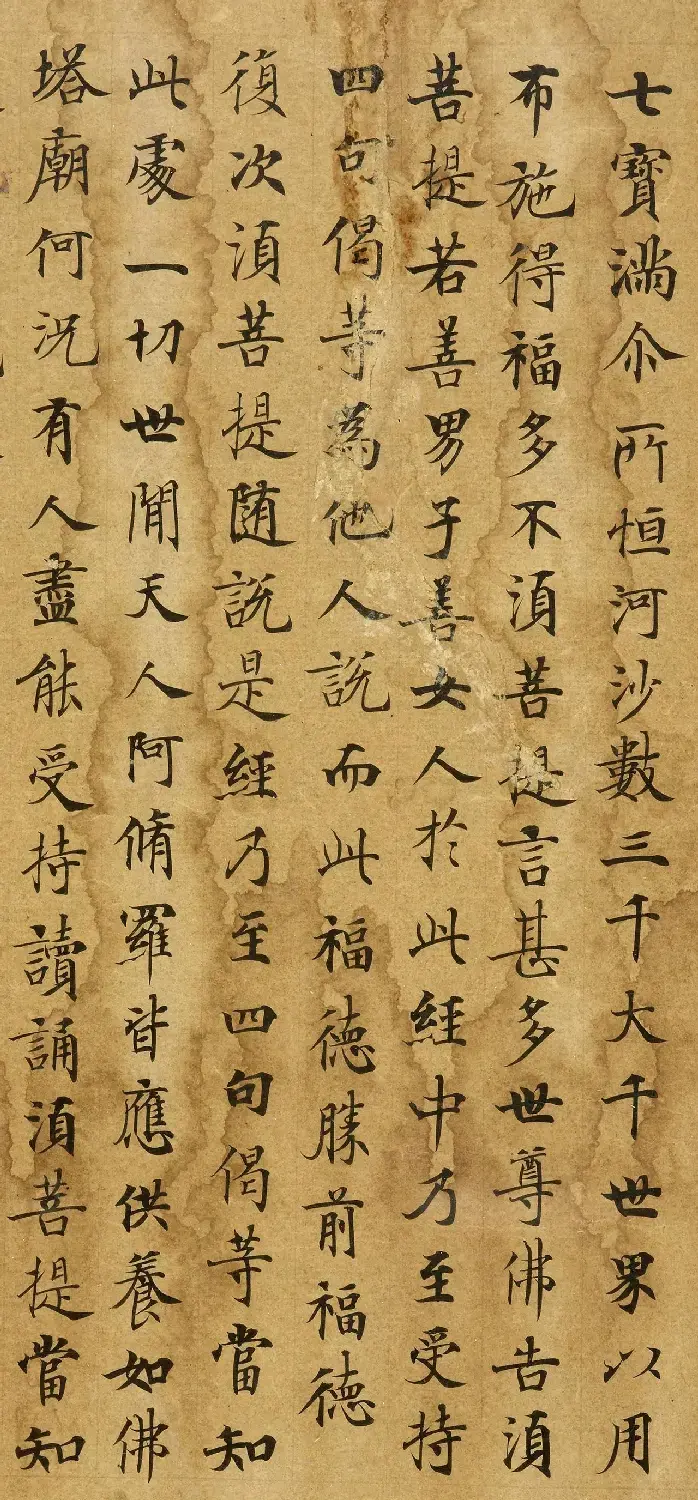 七寶滿尒所恒河沙數三千大千世界以用
布施得福多不湏菩提言甚多世尊佛告湏
菩提若善男子善女人於此經中乃至受持
四句偈等為他人說而此福德勝前福德
復次湏菩提随說是經乃至四句偈等當知
此處一切世間天人阿脩羅皆應供養如佛
塔廟何況有人盡能受持讀誦湏菩提當知